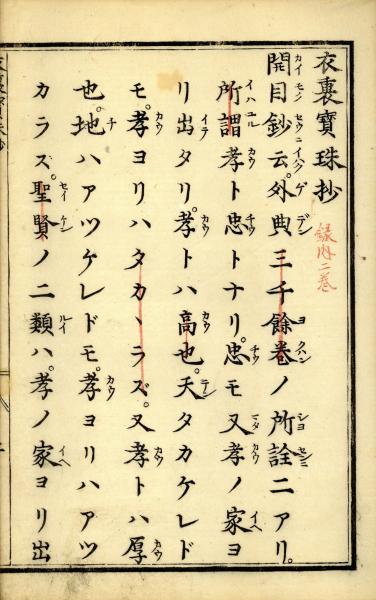 衣裏寶珠抄
開目鈔云。外典三千餘卷ノ所詮ニアリ。
所謂孝ト忠トナリ。忠モ又孝ノ家ヨ
リ出タリ。孝トハ高也。天タカケレド
モ。孝ヨリハタカヽラズ。又孝トハ厚
也。地ハアツケレドモ。孝ヨリハアツ
カラズ。聖賢ノ二類ハ。孝ノ家ヨリ出
録内二卷